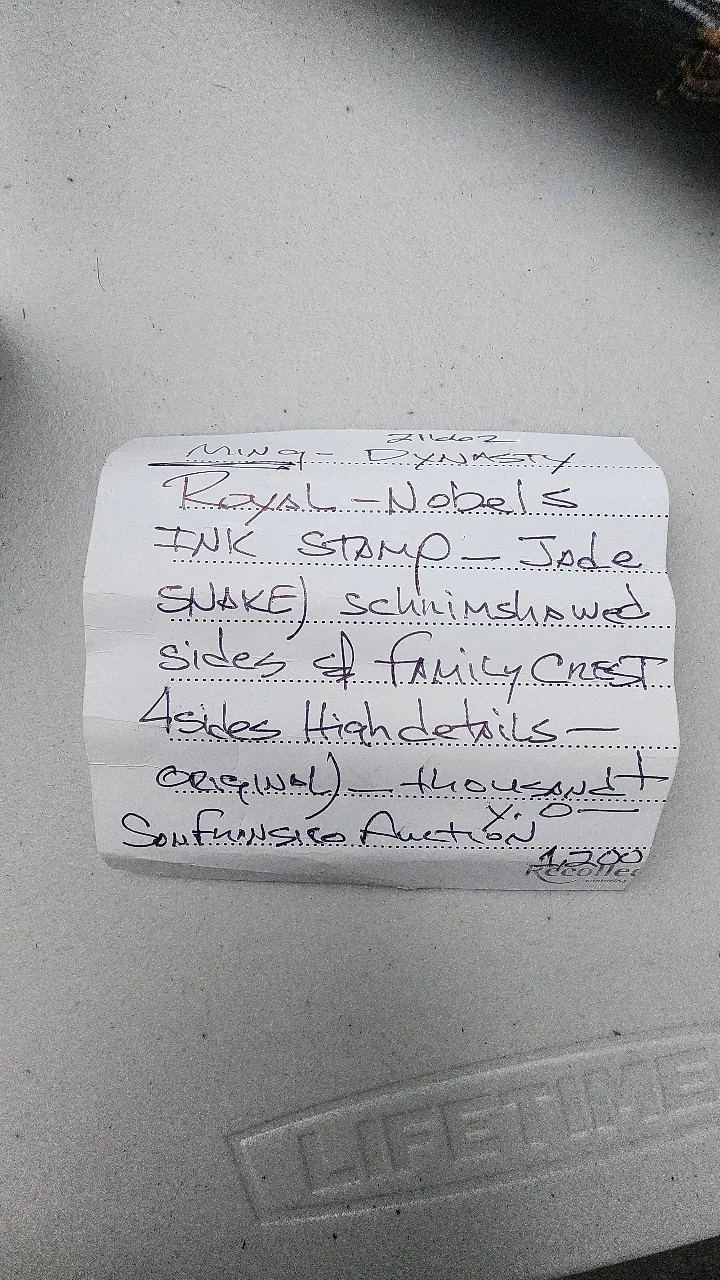 Ming - Dynasty
Royal - Nobels
INK STAMP - Jade
SNAKE) schrimshawed
sides & FAMILY CREST
4 sides High details -
ORIGINAL) - thousand +
y. O -
San Fransisco Auction
1,200
Recollec
LIFETIME